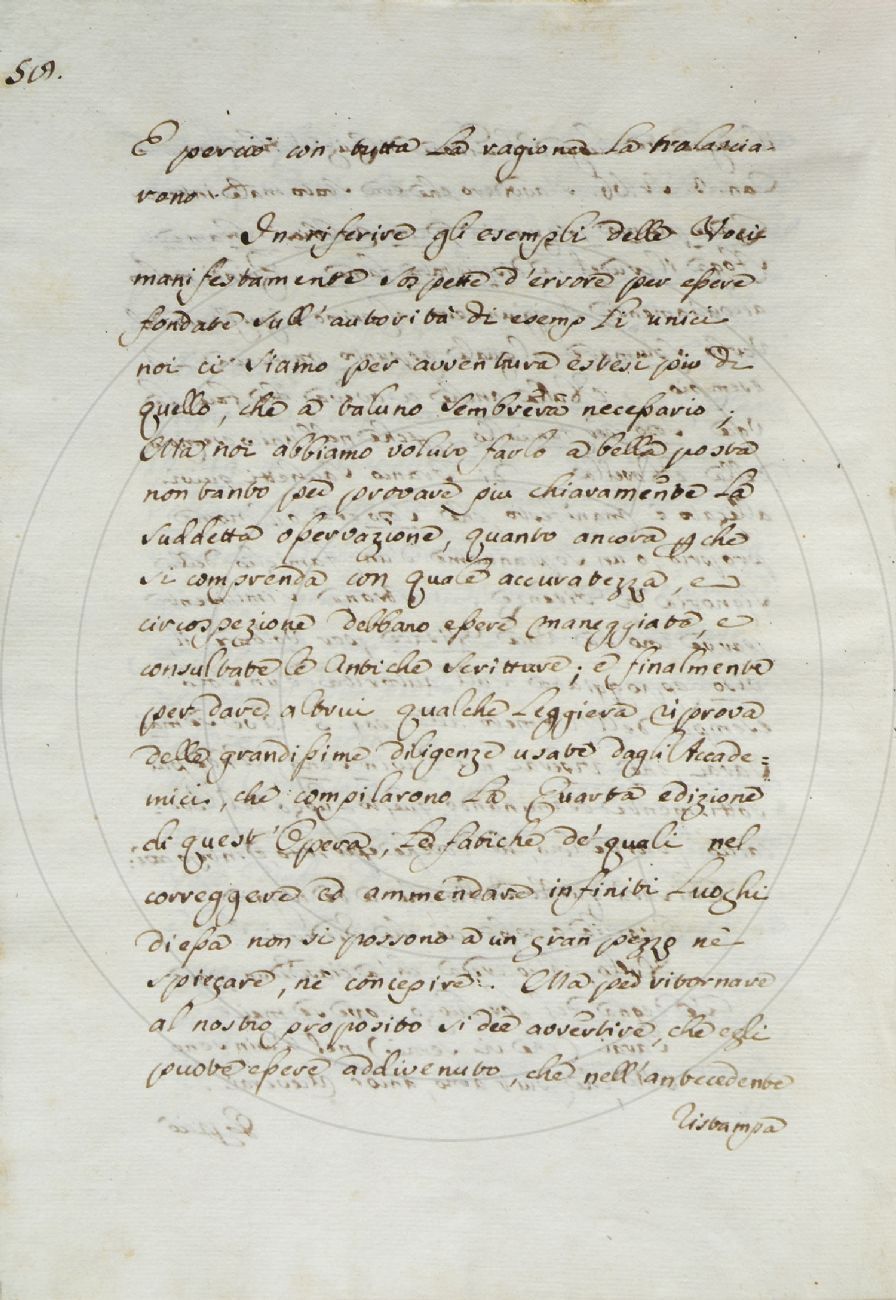 58.
E perciò con tutta la ragione la tralascia-
rono.
In riferire gli esempli delle Voci
manifestamente sospette d'errore per essere
fondate sull'autorità di esempli unici
noi ci siamo per avventura estesi più di
quello, che a taluno sembrerà necessario;
Ma noi abbiamo voluto farlo a bella posta
non tanto per provare più chiaramente la
suddetta osservazione, quanto ancora perche
si comprenda con quale accuratezza, e
circospezione debbano essere maneggiate, e
consultate le Antiche scritture; e finalmente
per dare altrui qualche leggiera riprova
delle grandissime diligenze usate dagli Accade=
mici, che compilarono la Quarta edizione
di quest'Opera, le fatiche de' quali nel
correggere ed ammendare infiniti luoghi
di essa non si possono a un gran pezzo nè
spiegare, nè concepire. Ma per ritornare
al nostro proposito si dee avvertire, che egli
puote essere addivenuto, che nell'antecedente
ristampa